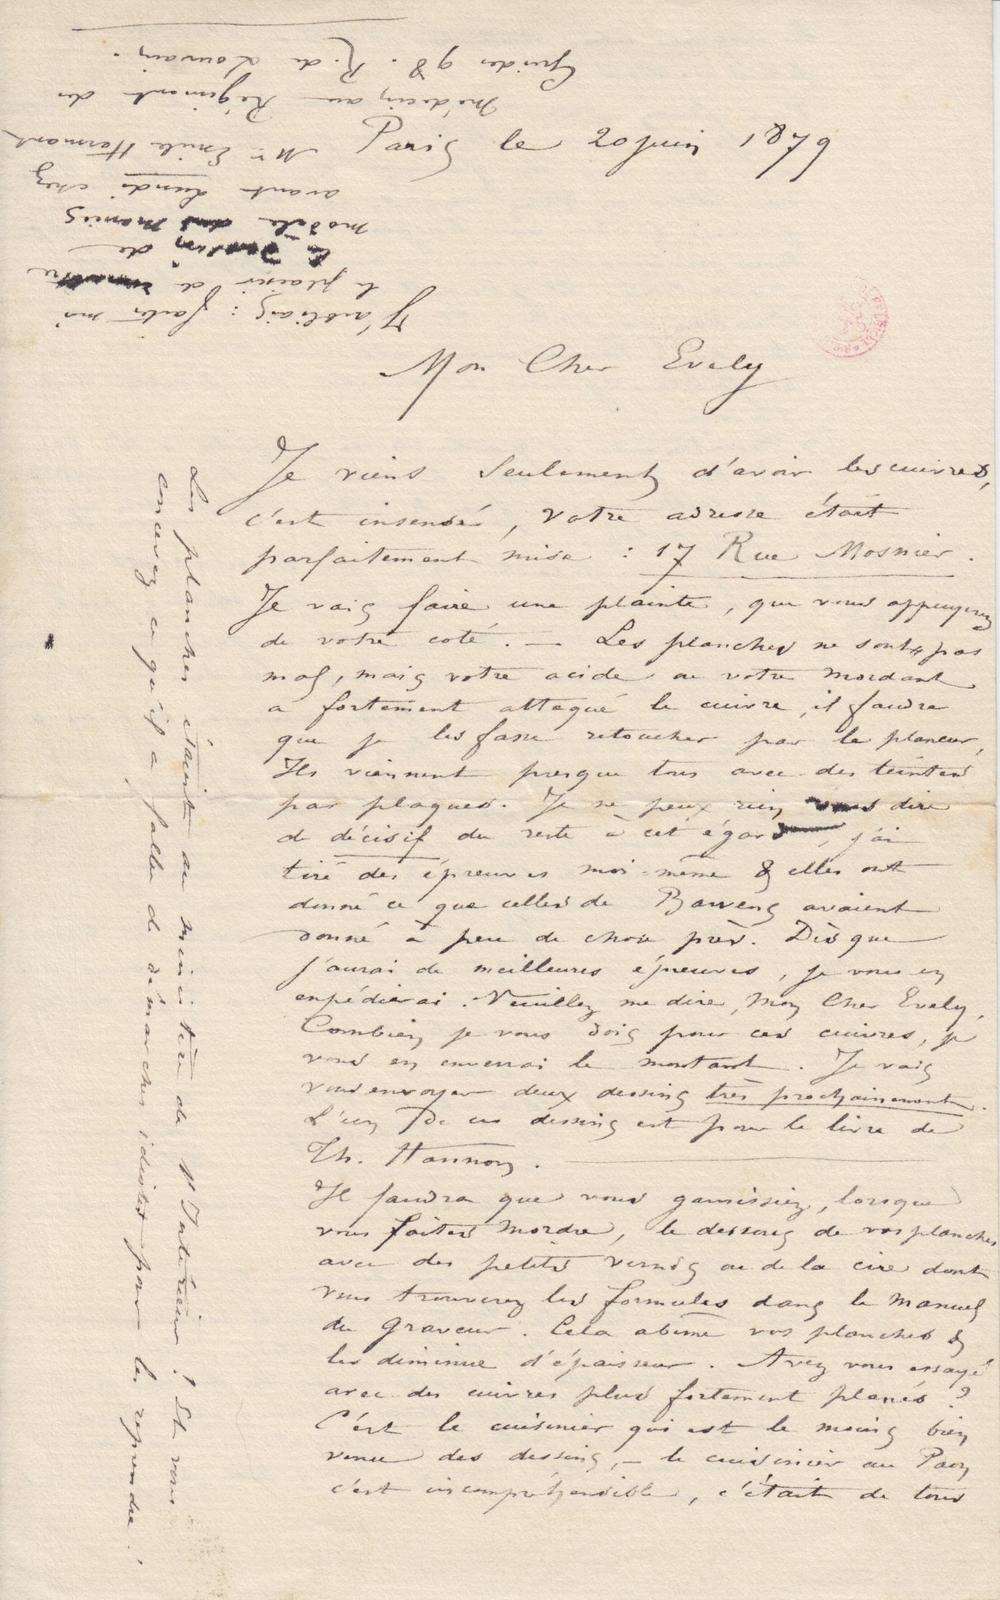 Paris le 20 juin 1879
Mon Cher Evely
Je viens seulement d'avoir les cuivres,
c'est insensé, votre adresse était
parfaitement mise : 17 Rue Mosnier.
Je vais faire une plainte, que vous appuyerez
de votre coté. — Les planches ne sont pas
mal, mais votre acide ou votre mordant
a fortement attaqué le cuivre, il faudra
que je les fasse retoucher par le planeur,
Ils viennent presque tous avec des teintes
par plaques. Je ne peux rien vous dire
de décisif du reste à cet égard, j'ai
tiré des épreuves moi-même & elles ont
donné ce que celles de Bauwens avaient
donné à peu de chose près. Dès que
j'aurai de meilleures épreuves, je vous en
expédierai. Veuillez me dire, Mon Cher Evely,
Combien je vous dois pour ces cuivres, je
vous en enverrai le montant. Je vais
vous envoyer deux dessins très prochainement.
L'un de ces dessins est pour le livre de
Th. Hannon.
Il faudra que vous garnissiez, lorsque
vous faites mordre, le dessous de vos planches
avec des petits vernis ou de la cire dont
vous trouverez les formules dans le manuel
du Graveur. Cela abîme vos planches &
les diminue d'épaisseur. Avez vous essayé
avec des cuivres plus fortement planés ?
C'est le cuisinier qui est le moins bien
venu des dessins, — le cuisinier au Paon
c'est incompréhensible, c'était de tous
Les planches étaient au ministère de l'Intérieur ! Et vous
concevez ce qu'il a fallu de démarches idiotes pour les reprendre !
J'oubliais : faites moi
le plaisir de remettre
le dessin, de
modèle dans Monnies
avant Lundi chez
Mr Emile Hermant
médecin au Régiment des
Guides 98. R. de Louvain.